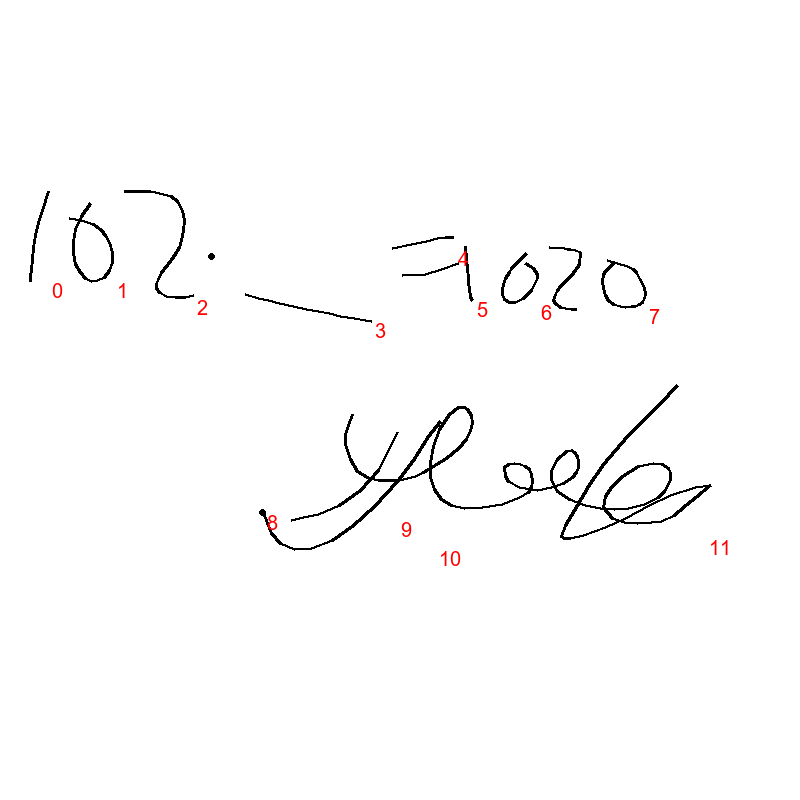 102 · ___ = 1020
0 1 2 3 4 5 6 7
8 9 10 11